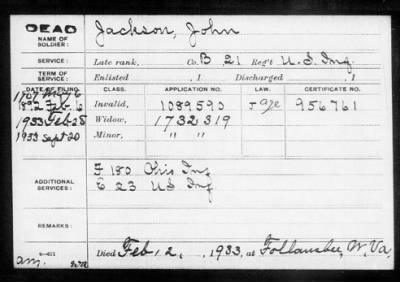 DEAD
NAME OF SOLDIER: Jackson, John
SERVICE: Late rank, Co. B 21 Reg't U.S. Inf.
TERM OF SERVICE: Enlisted , 1 Discharged , 1
DATE OF FILING. CLASS. APPLICATION NO. LAW. CERTIFICATE NO.
Feb. 6 Invalid, 1089590 age 956761
1933 Feb 28 Widow, 1732319
1933 Sept 20 Minor, " "
ADDITIONAL SERVICES: F 180 Ohio Inf
E 23 US Inf
REMARKS:
Died Feb 12, , 1933, at Follansbee, W. Va.